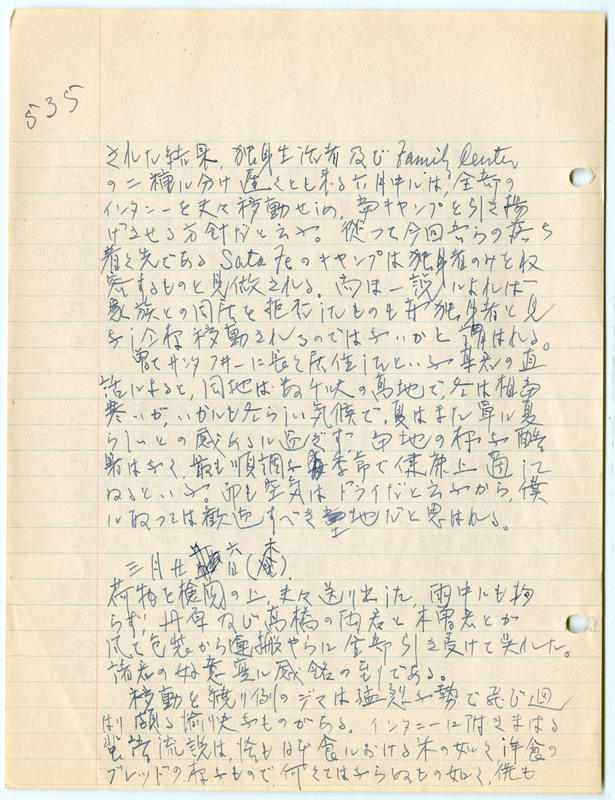 535
された結果、独身生活者及び Family Center
の二種に分け遅くとも来る六月中には、全部の
インタニーを夫々移動せしめ、当キャンプを引き揚
げさせる方針だと云ふ。従って今回吾らの落ち
着く先である Sata Fe のキャンプは独身者のみを収
容するものと見做される。尚ほ一説によれば
家族との同居を拒否したものも亦独身者と見
移動されるのではないかと謂はれる。
曽てサンタフヰーに長く居住したといふ 君の直
話によると、同地は数千呎の高地で、冬は相当
寒いが、いかにも冬らしい気候で、夏はまた単に夏
らしいとの感あるに過ぎず 当地の様な酷
暑はなく、最も順調な季節で健康上適して
ゐるといふ。而も空気はドライだと云ふから、僕
に取っては歓迎すべき地だと思はれる。
三月廿六日(木)
荷物を検閲の上、夫々送り出した、雨中にも拘
らず、丹原及び高橋の両君と木曽君とが
凡て包装から運搬やらに全部引き受けて呉れた。
諸君の好意実に感銘の到りである。
移動を繞り例のデマは猛烈な勢で飛び廻
はり頗る愉快なものがある。インタニーに附きまはる
流説は、恰も日本食における米の如く洋食の
ブレッドの様なもので、何くてはならぬもの如く、侭も